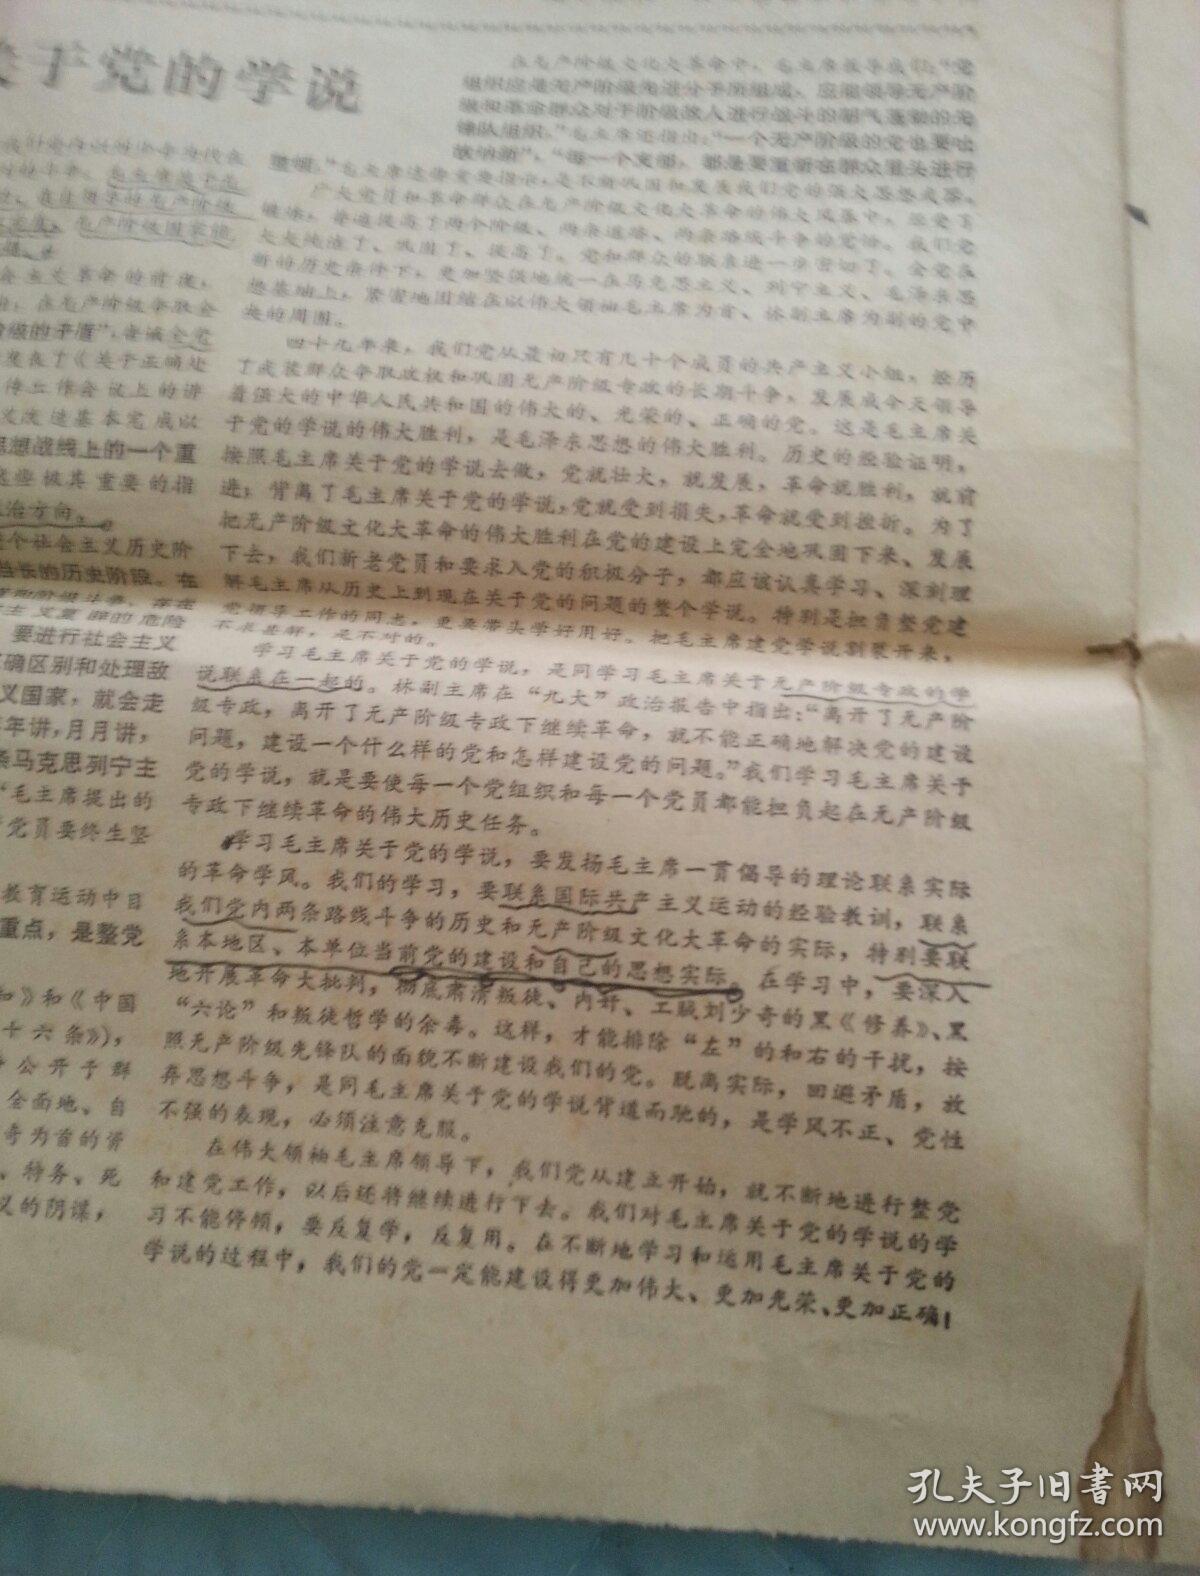 关于党的学说
我们党内以刘少奇为代表
会主义革命的前夜，
阶级的矛盾”，告诫全党
发表了《关于正确处
传工作会议上的讲
义改造基本完成以
思想战线上的一个重
这些极其重要的指
治方向。
个社会主义历史阶
当长的历史阶段。在
主义复辟的危险
要进行社会主义
确区别和处理敌
义国家，就会走
年讲，月月讲，
条马克思列宁主
“毛主席提出的
党员要终生坚
教育运动中目
重点，是整党
和》和《中国
十六条》)，
公开于群
全面地、自
奇为首的资
、特务、死
义的阴谋，
在无产阶级文化大革命中，毛主席教导我们：“党
组织应是无产阶级先进分子所组成，应能领导无产阶
级和革命群众对于阶级敌人进行战斗的朝气蓬勃的先
锋队组织。”毛主席还指出：“一个无产阶级的党也要吐
故纳新”，“每一个支部，都是要重新在群众里头进行
整顿。”毛主席这些重要指示，是不断巩固和发展我们党的强大思想武器。
广大党员和革命群众在无产阶级文化大革命的伟大风暴中，经受了
锻炼，普遍提高了两个阶级、两条道路、两条路线斗争的觉悟。我们党
大大纯洁了、巩固了、提高了。党和群众的联系进一步密切了。全党在
新的历史条件下，更加坚强地统一在马克思主义、列宁主义、毛泽东思
想基础上，紧密地团结在以伟大领袖毛主席为首、林副主席为副的党中
央的周围。
四十九年来，我们党从最初只有几十个成员的共产主义小组，经历
了武装群众夺取政权和巩固无产阶级专政的长期斗争，发展成今天领导
着强大的中华人民共和国的伟大的、光荣的、正确的党。这是毛主席关
于党的学说的伟大胜利，是毛泽东思想的伟大胜利。历史的经验证明，
按照毛主席关于党的学说去做，党就壮大，就发展，革命就胜利，就前
进；背离了毛主席关于党的学说，党就受到损失，革命就受到挫折。为了
把无产阶级文化大革命的伟大胜利在党的建设上完全地巩固下来、发展
下去，我们新老党员和要求入党的积极分子，都应该认真学习、深刻理
解毛主席从历史上到现在关于党的问题的整个学说。特别是担负整党建
党领导工作的同志，更要带头学好用好。把毛主席建党学说割裂开来，
不求甚解，是不对的。
学习毛主席关于党的学说，是同学习毛主席关于无产阶级专政的学
说联系在一起的。林副主席在“九大”政治报告中指出：“离开了无产阶
级专政，离开了无产阶级专政下继续革命，就不能正确地解决党的建设
问题，建设一个什么样的党和怎样建设党的问题。”我们学习毛主席关于
党的学说，就是要使每一个党组织和每一个党员都能担负起在无产阶级
专政下继续革命的伟大历史任务。
学习毛主席关于党的学说，要发扬毛主席一贯倡导的理论联系实际
的革命学风。我们的学习，要联系国际共产主义运动的经验教训，联系
我们党内两条路线斗争的历史和无产阶级文化大革命的实际，特别要联
系本地区、本单位当前党的建设和自己的思想实际。在学习中，要深入
地开展革命大批判，彻底肃清叛徒、内奸、工贼刘少奇的黑《修养》、黑
“六论”和叛徒哲学的余毒。这样，才能排除“左”的和右的干扰，按
照无产阶级先锋队的面貌不断建设我们的党。脱离实际，回避矛盾，放
弃思想斗争，是同毛主席关于党的学说背道而驰的，是学风不正、党性
不强的表现，必须注意克服。
在伟大领袖毛主席领导下，我们党从建立开始，就不断地进行整党
和建党工作，以后还将继续进行下去。我们对毛主席关于党的学说的学
习不能停顿，要反复学，反复用。在不断地学习和运用毛主席关于党的
学说的过程中，我们的党一定能建设得更加伟大、更加光荣、更加正确！
孔夫子旧书网
www.kongfz.com